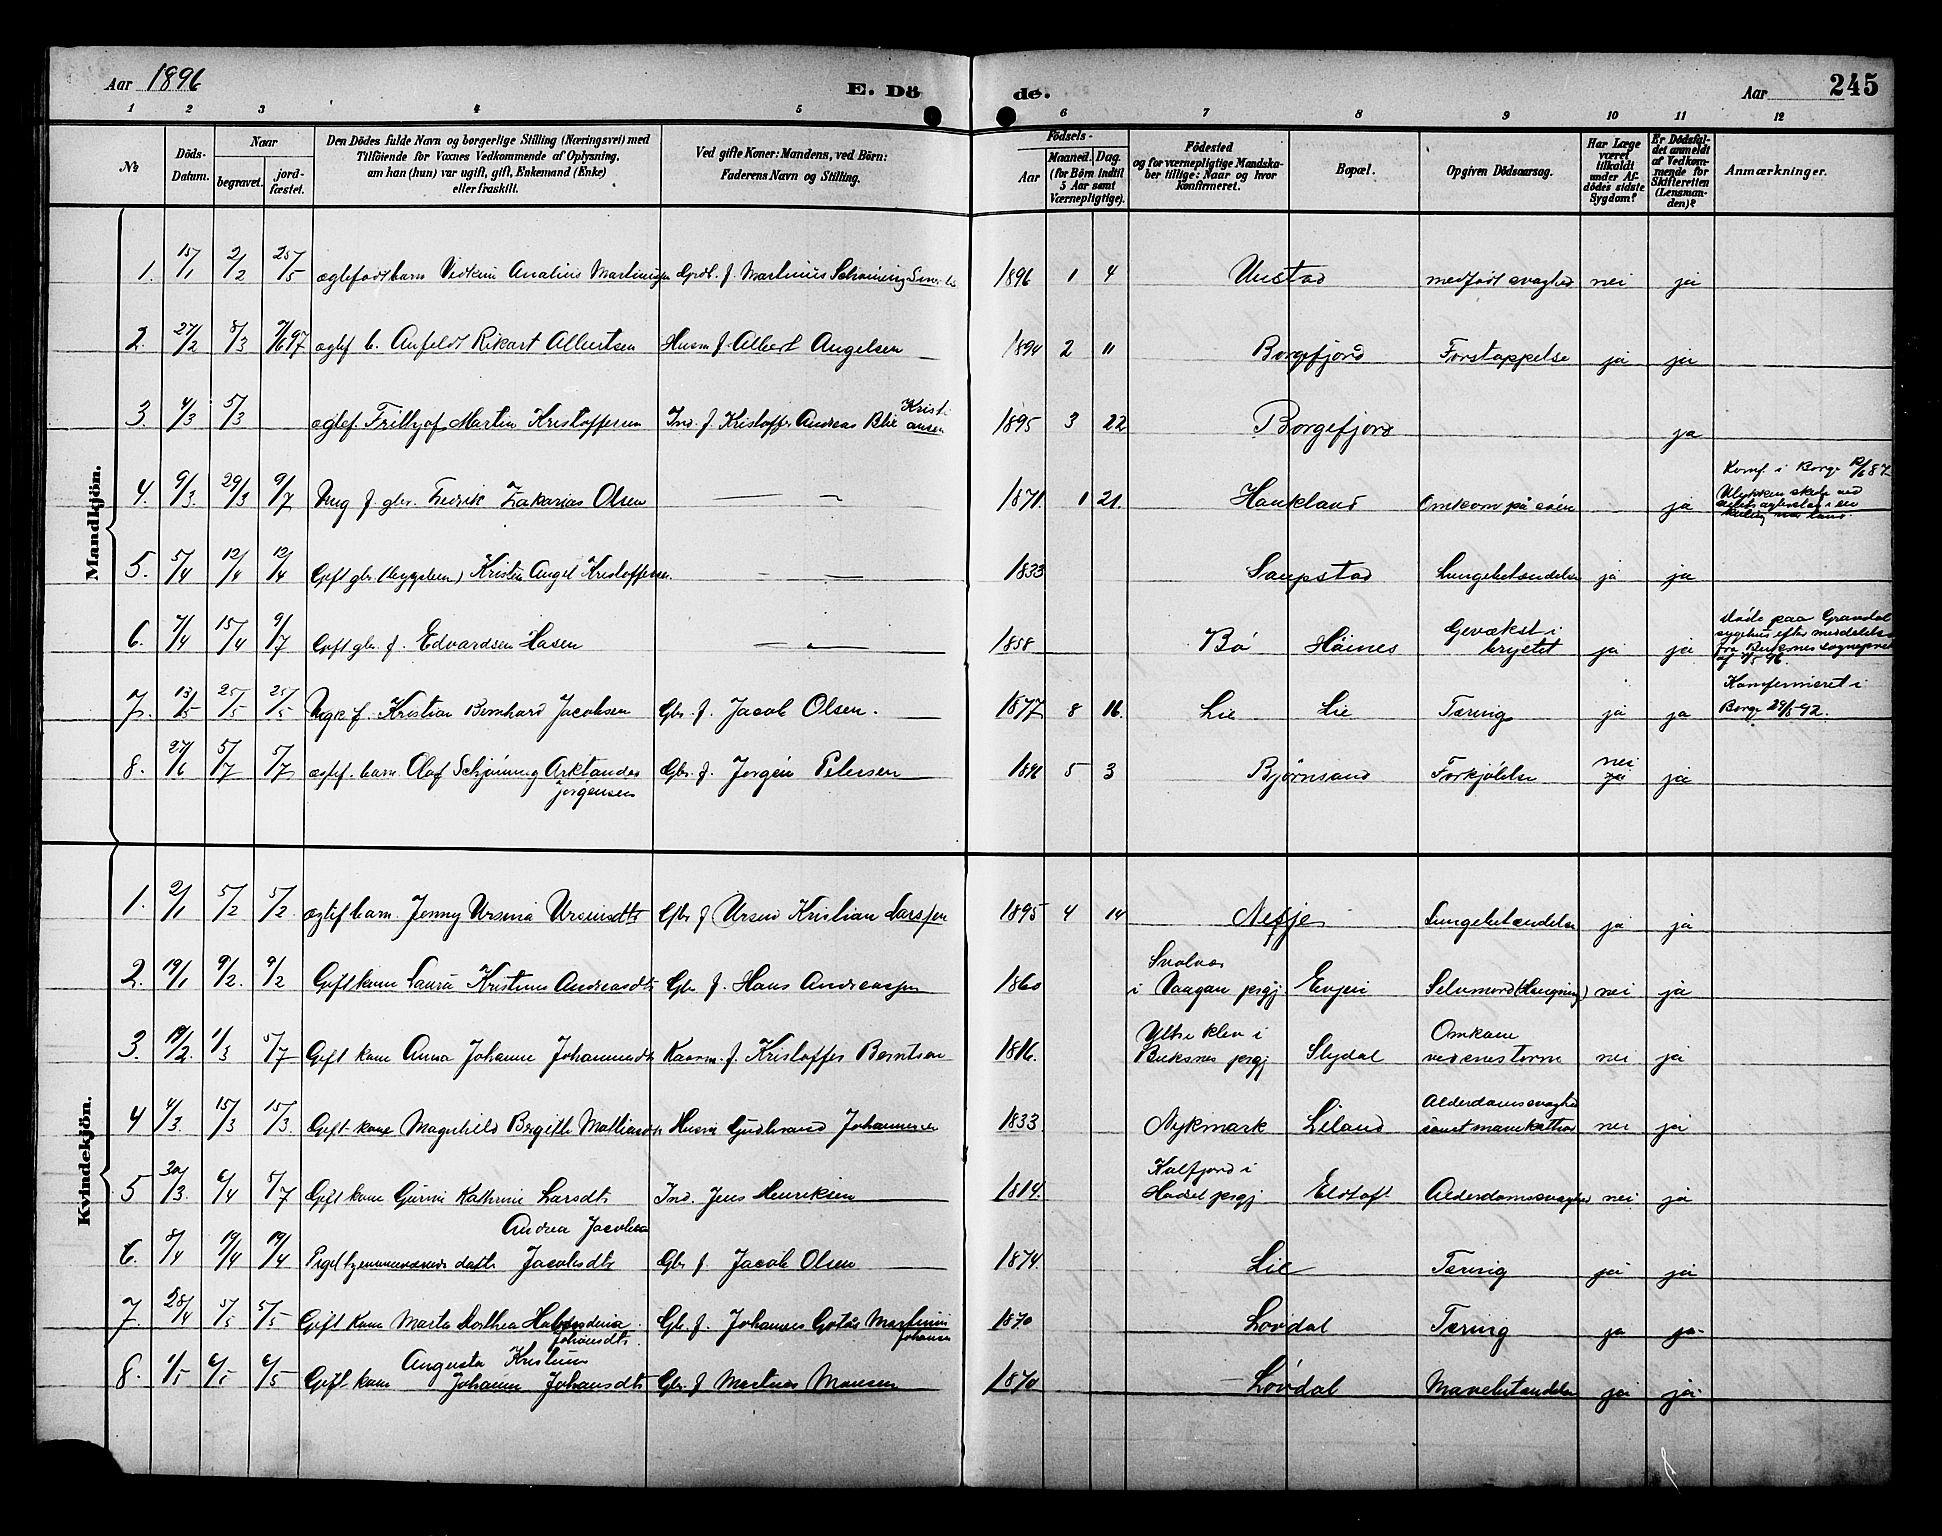 Aar 1896
E. Döde.
Aar
245
1 2 3 4 5 6 7 8 9 10 11 12
№
Döds-Datum.
Naar
begravet.
jord-fæstet.
Den Dödes fulde Navn og borgerlige Stilling (Næringsvei) med
Tilföiende for Voxnes Vedkommende af Oplysning,
om han (hun) var ugift, gift, Enkemand (Enke)
eller fraskilt.
Ved gifte Koner: Mandens, ved Börn:
Faderens Navn og Stilling.
Födsels-
Aar
Maaned. Dag.
(for Börn indtil
5 Aar samt
Værnepligtige).
Födested
og for værnepligtige Mandska-
ber tillige: Naar og hvor
konfirmeret.
Bopæl.
Opgiven Dödsaarsag.
Har Læge
været
tilkaldt
under Af-
dödes sidste
Sygdom?
Er Dödsfal-
det anmeldt
af Vedkom-
mende for
Skifteretten
(Lensman-
den)?
Anmærkninger.
Mandkjön.
1. 15/1 2/2 25/5 ægtefødt barn Analius Martinussen Grdb. f. Martinus Schøning 1896 1 4 Unstad medfødt svaghed nei ja
2. 27/2 8/3 ægtef b. Anfeldt Rikart Albertsen Husm f. Albert Angelsen 1894 2 11 Borgefjord Forstoppelse ja ja
3. 4/3 5/3 ægtef. Frithjof Martin Kristoffersen Ind. f. Kristoffer Andreas Kristiansen 1895 3 22 Borgefjord ja
4. 9/3 29/3 9/7 Ung f. gbr. Fredrik Zakarias Olsen — — 1871. 1 21. Haukland Omkom på søen ja Konf. i Borge
5. 5/4 12/4 12/4 Gift gbr. Kristen Angel Kristoffersen. — — 1833 Saupstad Lungebetændelse ja ja
6. 7/4 15/4 9/7 Gift gbr. f. Edvardsen Hasen — — 1858 Bø Høines Gevækst i brystet ja ja Døde paa Gravdal
sygehus efter meddelelse
fra Buksnes sogneprest
af 7/5 96.
7. 13/5 25/5 25/5 Ungk f. Kristian Bernhard Jacobsen Gbr. f. Jacob Olsen. 1877 8 16. Lie Lie Tæring ja ja Konfirmeret i
Borge 92.
8. 27/6 5/7 5/7 ægtef. barn Olaf Schjøning Arktander Jørgensen Gbr. f. Jørgen Petersen 5 3 Bjørnsand Forkjølelse nei ja ja
Kvindekjön.
1. 2/1 5/2 5/2. ægtef barn Jenny Ursina Ursinsdtr Gbr f Ursin Kristian Larssen 1895 4 14 Lungebetændelse ja ja
2. 19/1 9/2. 9/2 Gift kone Laura Kristine Andreasdtr Gbr f. Hans Andreassen 1860 Svolvær
i Vaagan prsgj Evjen Selvmord (Hængning) nei ja
3. 19/2. 1/3 5/7 Gift kone Anna Johanne Johannesdtr Kaarm. f. Kristoffer Berntsen 1816. Yttre klev i
Buksnes prsgj Slydal Omkom
ved enestorm nei ja
4 4/3. 15/3 15/3. Gift kone Magnhild Bergithe Mathiasdtr Husm Gudbrand Johannesen 1833 Nykmark Liland Alderdomssvaghed
samt mavekathar nei ja
5 30/3. 6/4 5/7 Gift kone Gurine Kathrine Larsdtr Ind. Jens Henriksen 1814. Kalfjord i
Hadsel prsgj Eldtoft Alderdomssvaghed nei ja
6. 8/4 19/4 19/4 Pige hjemmeværende datter Andrea Jacobea
Jacobsdtr Gbr f. Jacob Olsen 1874. Lie Tæring ja ja
7. 28/4 5/5 5/5 Gift kone Marta Dorthea
Johansdtr. Gbr. f. Johannes Martinius
Johansen 1870 Løvdal Tæring ja ja
8. 1/5 6/5 6/5 Gift kone Augusta Kristine
Johanne Johansdtr Gbr. f Martinus Monsen 1870 Løvdal Mavebetændelse ja ja